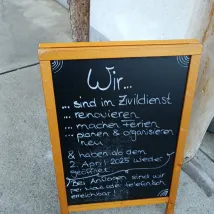 Wir...
... sind im Zivildienst
... renovieren
... machen Ferien
... planen & organisieren
neu
& haben ab dem
2. April 2025 wieder
geöffnet
Bei Anfragen sind wir
per Mail oder telefonisch
erreichbar!